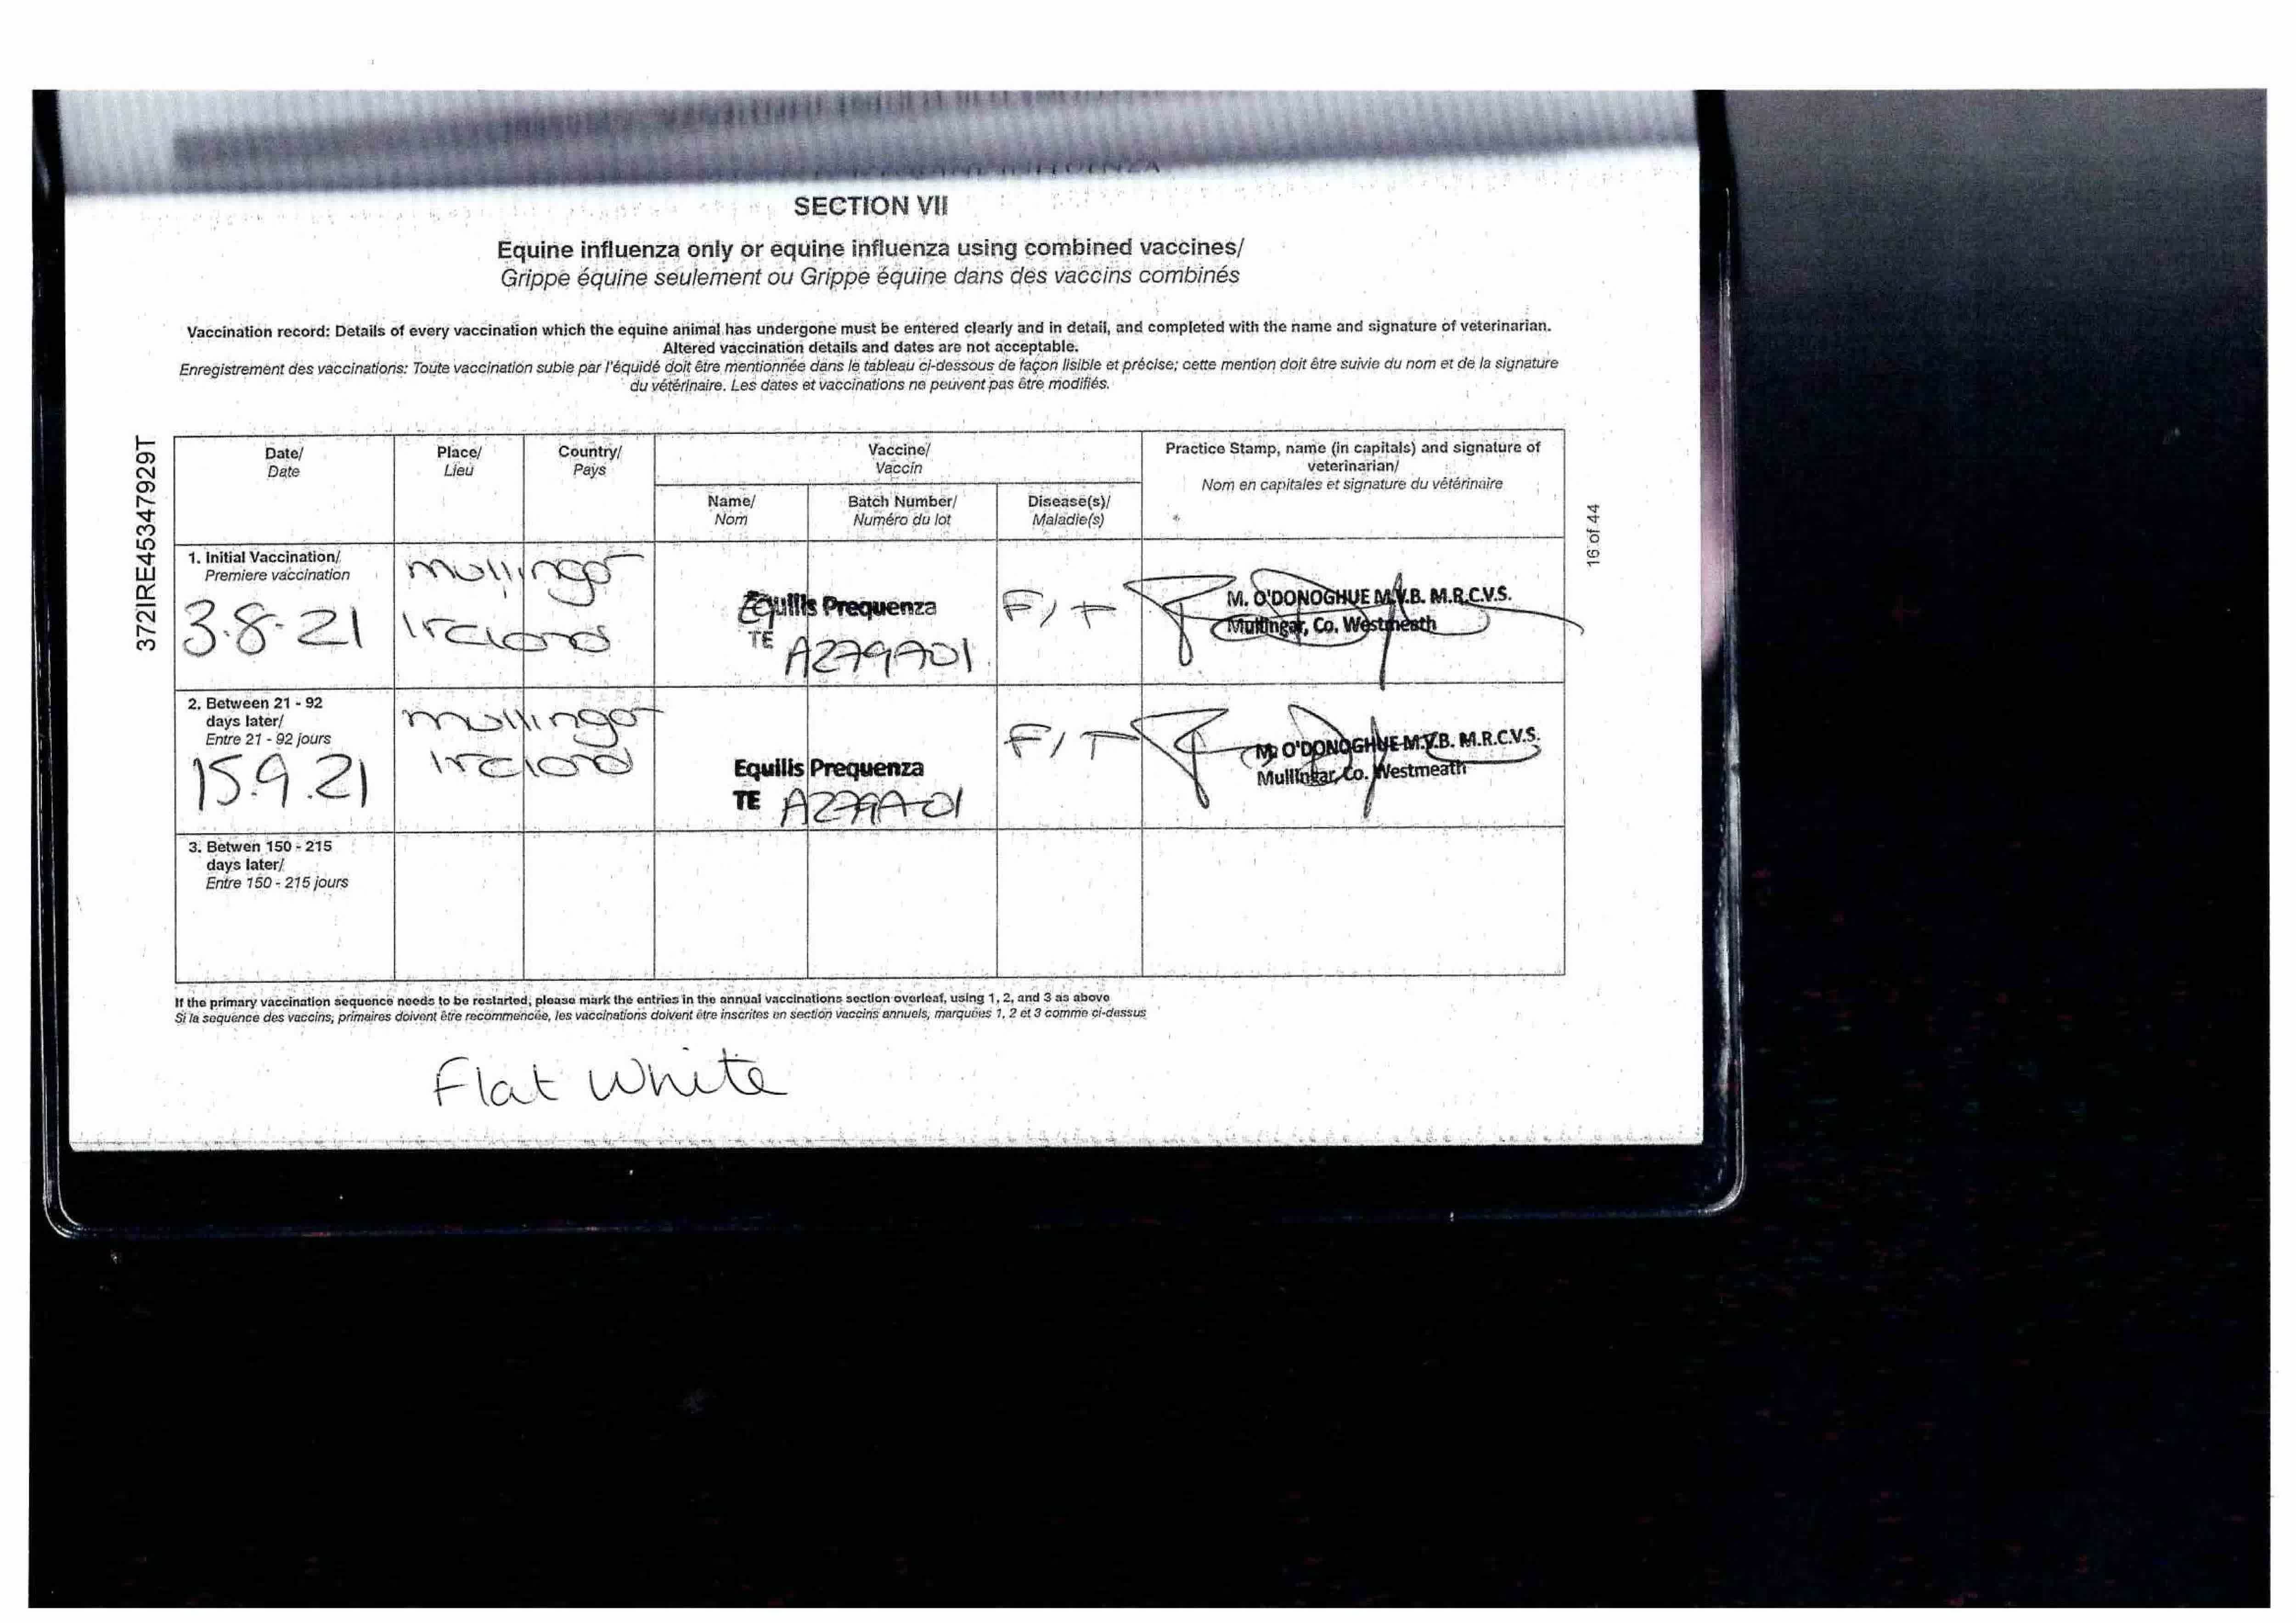 SECTION VII
Equine influenza only or equine influenza using combined vaccines/
Grippe équine seulement ou Grippe équine dans des vaccins combinés
Vaccination record: Details of every vaccination which the equine animal has undergone must be entered clearly and in detail, and completed with the name and signature of veterinarian.
Altered vaccination details and dates are not acceptable.
Enregistrement des vaccinations: Toute vaccination subie par l'équidé doit être mentionnée dans le tableau ci-dessous de façon lisible et précise; cette mention doit être suivie du nom et de la signature
du vétérinaire. Les dates et vaccinations ne peuvent pas être modifiés.
372IRE453479929T
16 of 44
Date/
Date
Place/
Lieu
Country/
Pays
Vaccine/
Vaccin
Name/
Nom
Batch Number/
Numéro du lot
Disease(s)/
Maladie(s)
Practice Stamp, name (in capitals) and signature of
veterinarian/
Nom en capitales et signature du vétérinaire
1. Initial Vaccination/
Premiere vaccination
3.8.21
Mullingar
Ireland
Equilis Prequenza
TE A279A01
F/T
M. O'DONOGHUE M.V.B. M.R.C.V.S.
Mullingar, Co. Westmeath
2. Between 21 - 92
days later/
Entre 21 - 92 jours
15.9.21
Mullingar
Ireland
Equilis Prequenza
TE A279A01
F/T
M. O'DONOGHUE M.V.B. M.R.C.V.S.
Mullingar, Co. Westmeath
3. Betwen 150 - 215
days later/
Entre 150 - 215 jours
If the primary vaccination sequence needs to be restarted, please mark the entries in the annual vaccinations section overleaf, using 1, 2, and 3 as above
Si la sequence des vaccins, primaires doivent être recommencée, les vaccinations doivent être inscrites en section vaccins annuels, marquées 1, 2 et 3 comme ci-dessus
Flat White